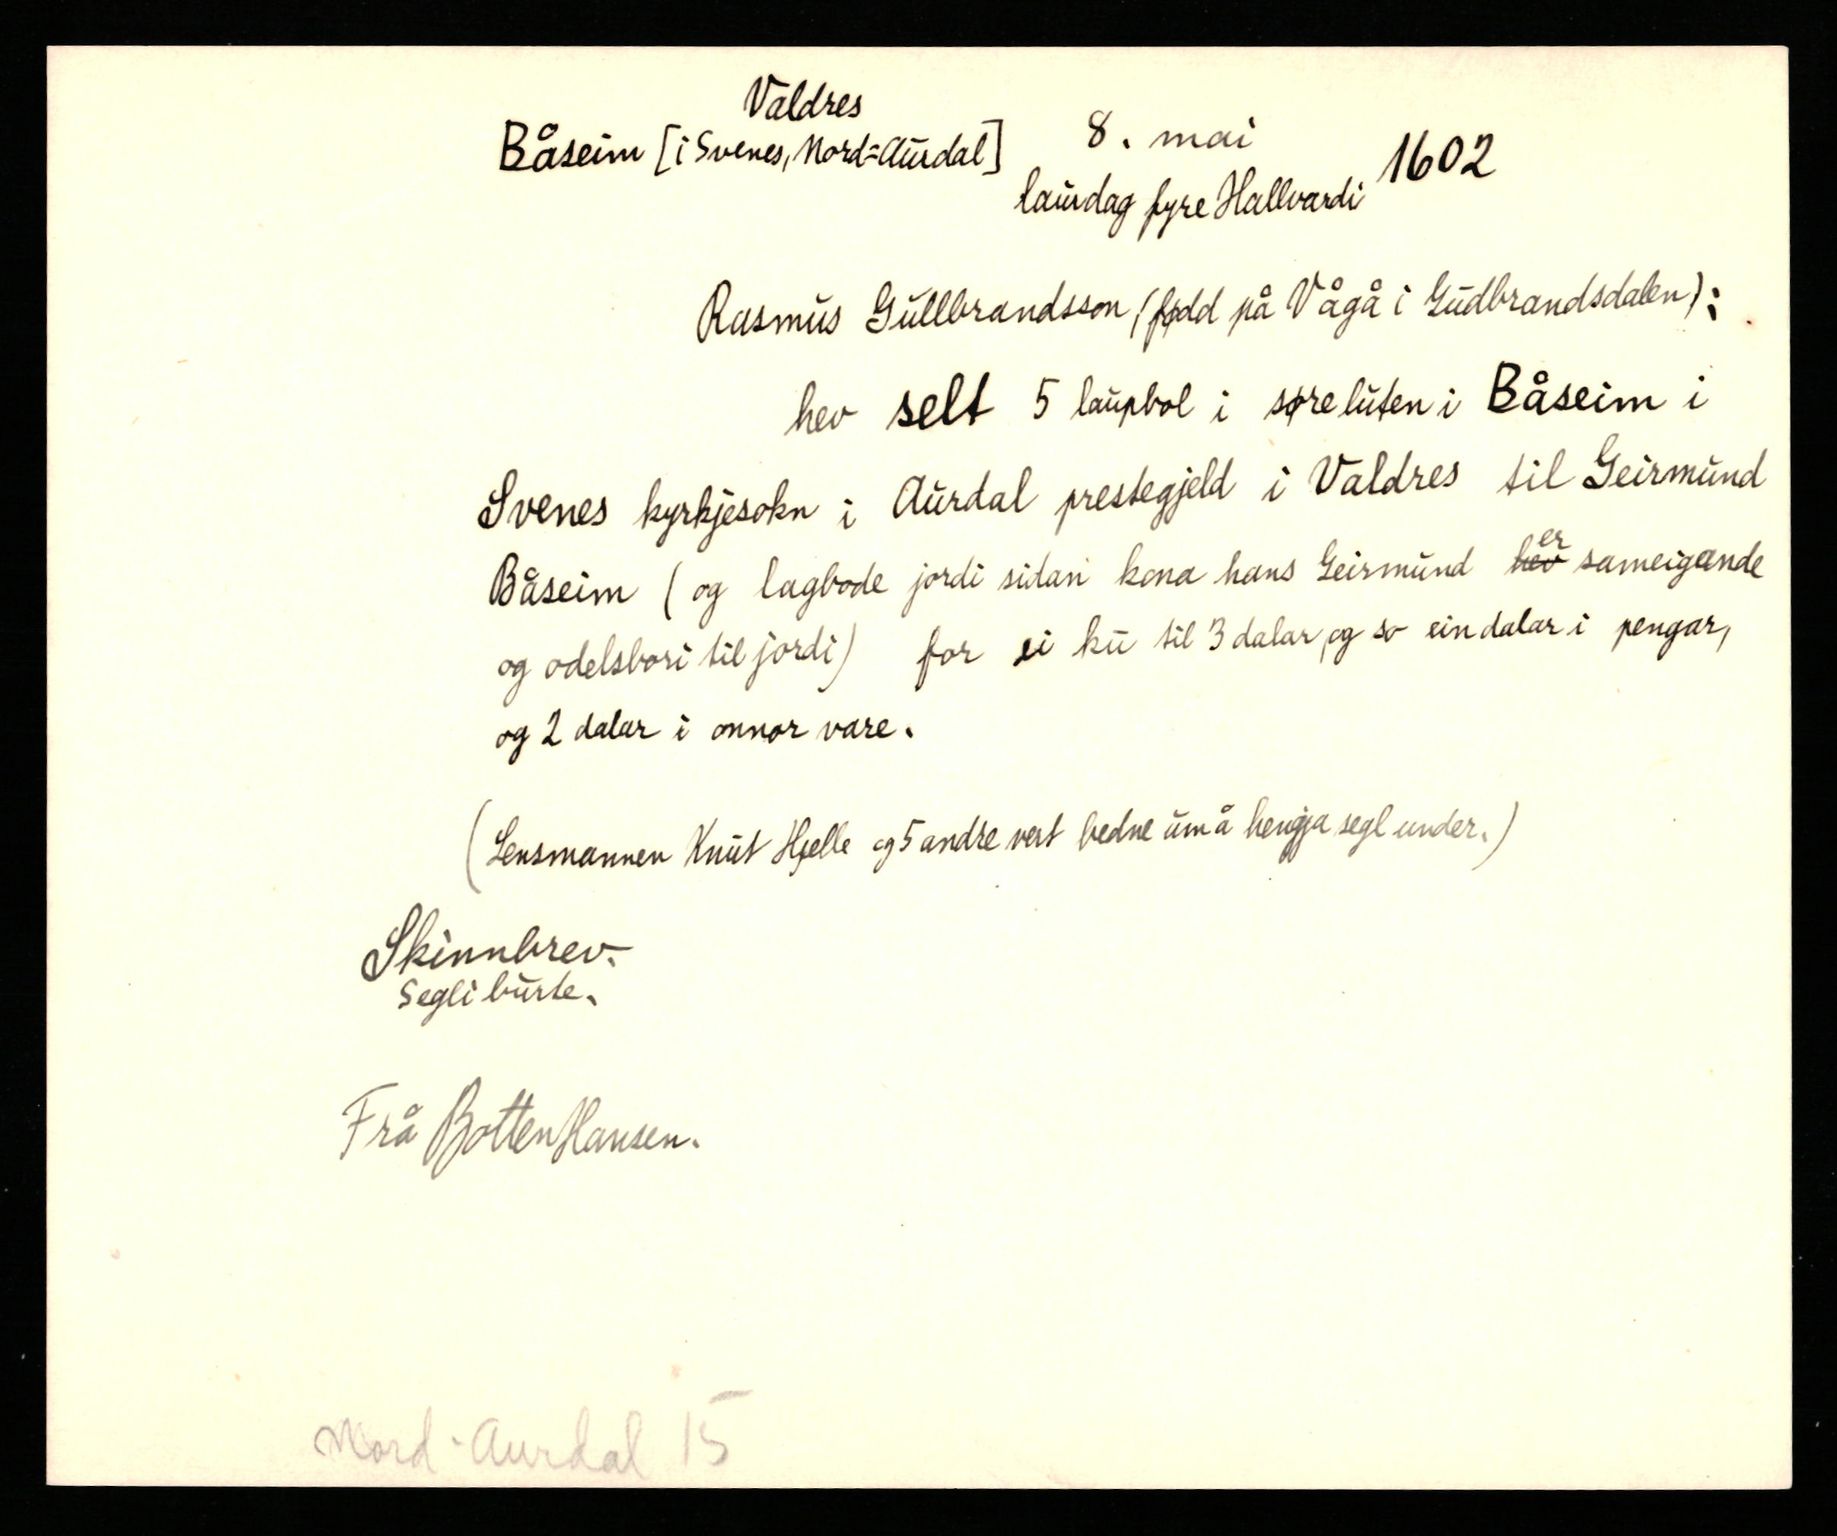 Valdres
Båseim [i Svenes, Nord=Aurdal] 8. mai 1602
laurdag fyre Hallvardi
Rasmus Gullbrandsson (fødd på Vågå i Gudbrandsdalen):
hev selt 5 laupbol i søreluten i Båseim i
Svenes kyrkjesokn i Aurdal prestegjeld i Valdres til Geirmund
Båseim (og lagbode jordi sidan kona hans Geirmund ~~hev~~ er sameigande
og odelsbori til jordi) for ei ku til 3 dalar, og so ein dalar i pengar,
og 2 dalar i onnor vare.
(Lensmannen Knut Hælle og 5 andre vert bedne um å hengja segl under.)
Skinnbrev.
Segli burte.
Frå Botten Hansen.
Nord-Aurdal 15